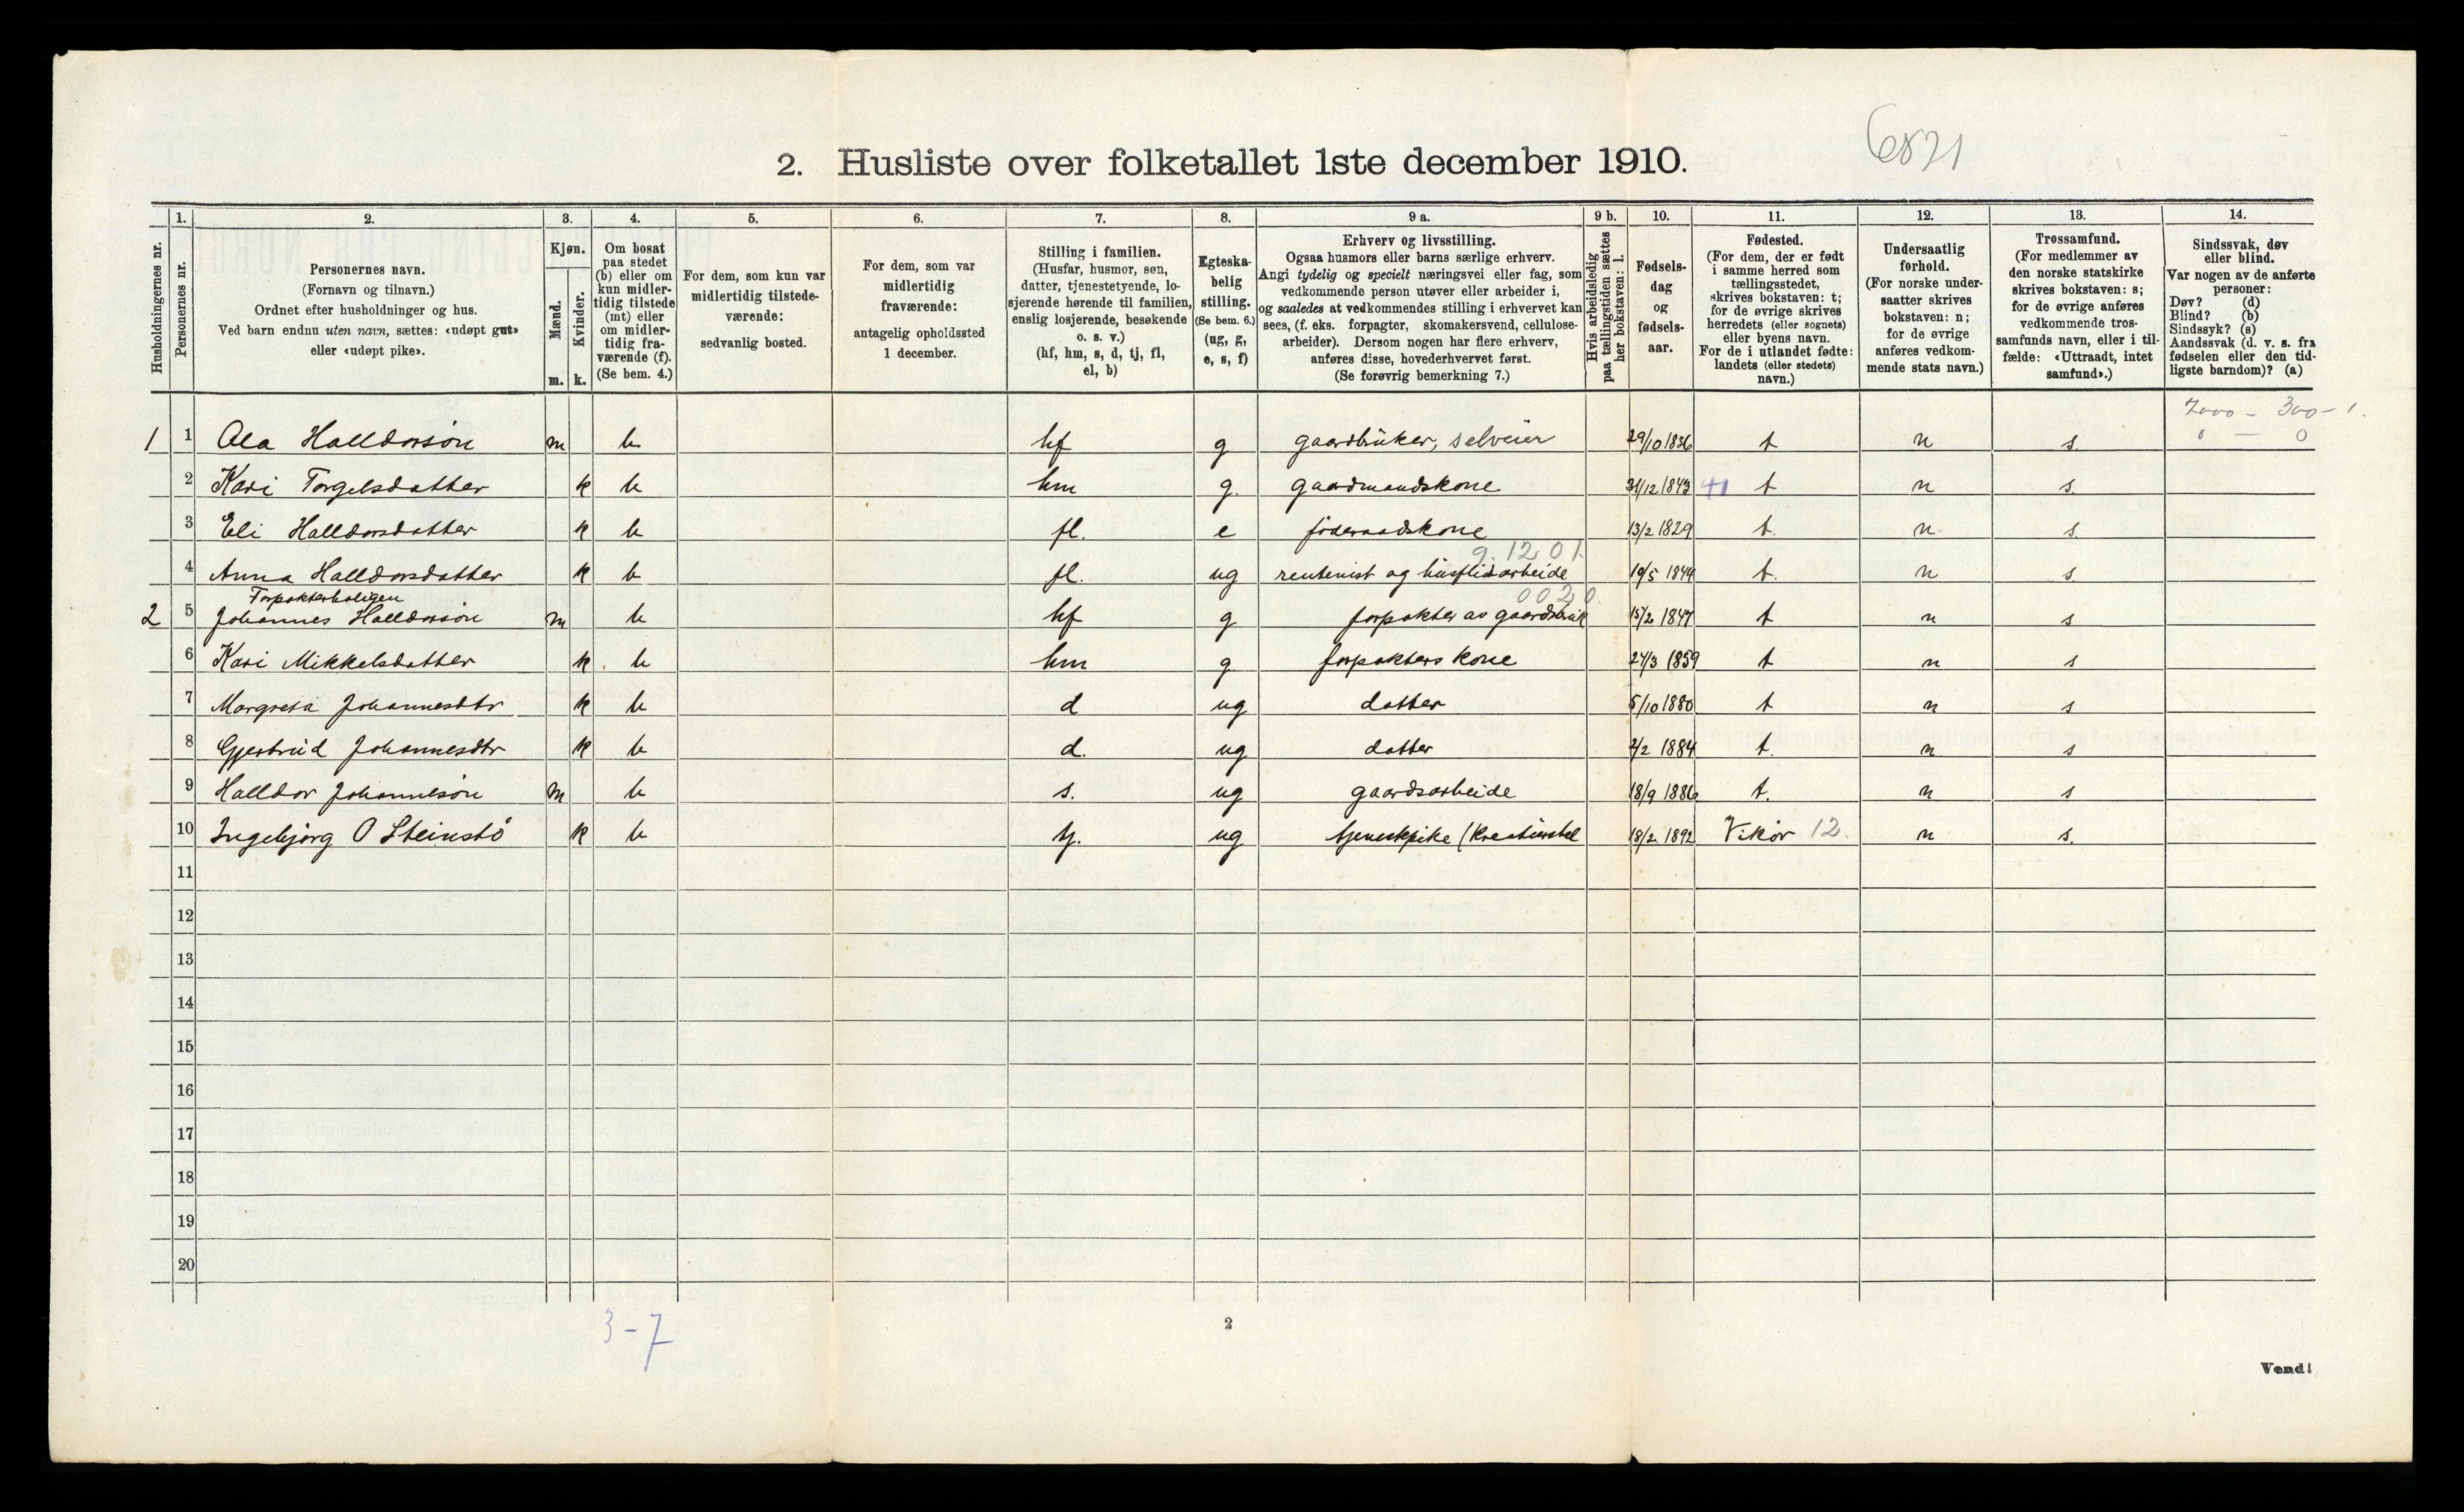 6821
2. Husliste over folketallet 1ste december 1910.
Husholdningernes nr.
1.
Personernes nr.
2.
Personernes navn.
(Fornavn og tilnavn.)
Ordnet efter husholdninger og hus.
Ved barn endnu uten navn, sættes: «udøpt gut»
eller «udøpt pike».
3.
Kjøn.
Mænd.
Kvinder.
m. k.
4.
Om bosat
paa stedet
(b) eller om
kun midler-
tidig tilstede
(mt) eller
om midler-
tidig fra-
værende (f).
(Se bem. 4.)
5.
For dem, som kun var
midlertidig tilstede-
værende:
sedvanlig bosted.
6.
For dem, som var
midlertidig
fraværende:
antagelig opholdssted
1 december.
7.
Stilling i familien.
(Husfar, husmor, søn,
datter, tjenestetyende, lo-
sjerende hørende til familien,
enslig losjerende, besøkende
o. s. v.)
(hf, hm, s, d, tj, fl,
el, b)
8.
Egteska-
belig
stilling.
(Se bem. 6.)
(ug, g,
e, s, f)
9 a.
Erhverv og livsstilling.
Ogsaa husmors eller barns særlige erhverv.
Angi tydelig og specielt næringsvei eller fag, som
vedkommende person utøver eller arbeider i,
og saaledes at vedkommendes stilling i erhvervet kan
sees, (f. eks. forpagter, skomakersvend, cellulose-
arbeider). Dersom nogen har flere erhverv,
anføres disse, hovederhvervet først.
(Se forøvrig bemerkning 7.)
9 b.
Hvis arbeidsledig
paa tællingstiden sættes
her bokstaven: l.
10.
Fødsels-
dag
og
fødsels-
aar.
11.
Fødested.
(For dem, der er født
i samme herred som
tællingsstedet,
skrives bokstaven: t;
for de øvrige skrives
herredets (eller sognets)
eller byens navn.
For de i utlandet fødte:
landets (eller stedets)
navn.)
12.
Undersaatlig
forhold.
(For norske under-
saatter skrives
bokstaven: n;
for de øvrige
anføres vedkom-
mende stats navn.)
13.
Trossamfund.
(For medlemmer av
den norske statskirke
skrives bokstaven: s;
for de øvrige anføres
vedkommende tros-
samfunds navn, eller i til-
fælde: «Uttraadt, intet
samfund».)
14.
Sindssvak, døv
eller blind.
Var nogen av de anførte
personer:
Døv? (d)
Blind? (b)
Sindssyk? (s)
Aandssvak (d. v. s. fra
fødselen eller den tid-
ligste barndom)? (a)
7000 - 300 - 1.
1 1 Ola Halldorsøn m b hf g gaardbruker, selveier 29/10 1836 t n s. 0 — 0
2 Kari Torgelsdatter k b hm g. gaardmandskone 31/12 1843 t n s.
3 Eli Halldorsdatter k b fl. e føderaadskone 13/2 1829 t. n s.
9.12 01.
4 Anna Halldorsdatter k b fl. ug rentenist og husflidarbeide 10/5 1844 t. n s.
Forpakterboligen 0020.
2 5 Johannes Halldorsøn m b hf g forpakter av gaardsbruk 15/2 1847 t n s
6 Kari Mikkelsdatter k. b hm g forpakters kone 24/3 1859 t n s
7 Margreta Johannesdtr k b d ug datter 5/10 1880 t n s
8 Gjertrud Johannesdtr k b d. ug datter 2/2 1884 t. n s
9 Halldor Johannesøn m b s. ug gaardsarbeide 18/9 1886 t. n s
10 Ingebjørg O Steinstø k b tj. ug tjenestpike (Kreaturstel 18/2 1892 Vikør 12. n s.
11
12
13
14
15
16
17
18
19
20
3-7
2
Vend!